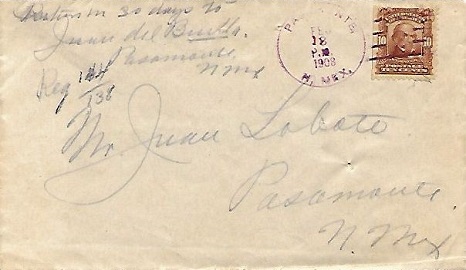 Return in 30 days to
Juan del Bueblo.
Pasamonte
N Mex
Reg 144
138
PASAMONTE
FEB
18
P.M.
1908
N. MEX.
10 10
POSTAGE
TEN CENTS
Mr. Juan Lobato
Pasamonte
N. Mex